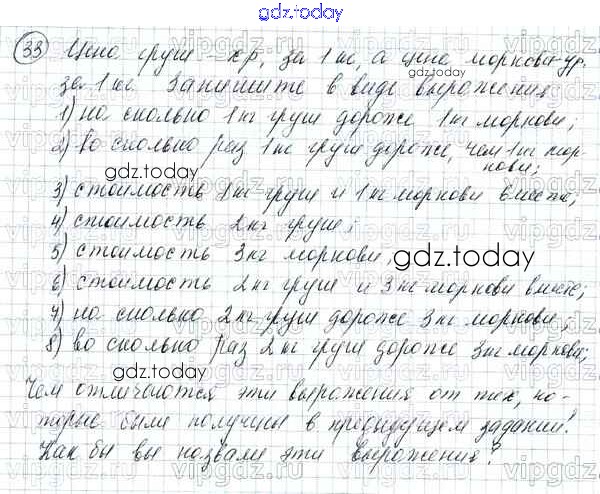 gdz.today
33 Цена груш – x р. за 1 кг, а цена моркови – y р.
за 1 кг. Запишите в виде выражения
1) на сколько 1 кг груш дороже 1 кг моркови;
2) во сколько раз 1 кг груш дороже, чем 1 кг мор-
нови;
gdz.today
3) стоимость 1 кг груш и 1 кг моркови вместе;
4) стоимость 2 кг груш;
gdz.today
5) стоимость 3 кг моркови;
gdz.today
6) стоимость 2 кг груш и 3 кг моркови вместе;
7) на сколько 2 кг груш дороже 3 кг моркови;
8) во сколько раз 2 кг груш дороже 3 кг моркови;
gdz.today
Чем отличаются эти выражения от тех, ко-
торые были получены в предыдущем задании?
Как бы вы назвали эти выражения?